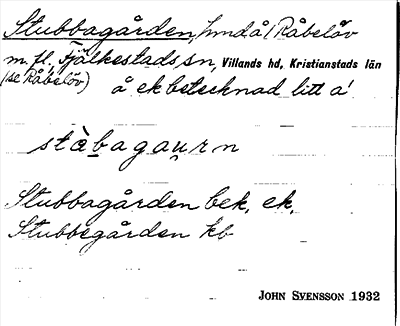 Stubbagården, hmdå/Råbelöv
m. fl. Fjälkestads sn, Villands hd, Kristianstads län
(se Råbelöv) å ek betecknad litt a!
stàbagau̯rn
Stubbagården bek, ek.
Stubbegården kb
JOHN SVENSSON 1932